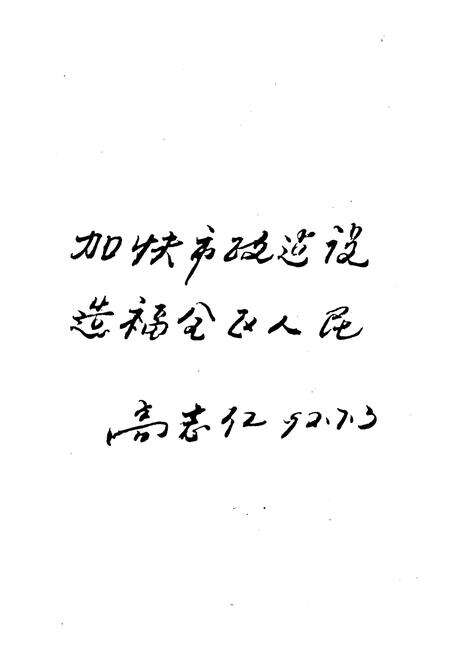 加快市政建设
造福全区人民
高志仁 92.7.3